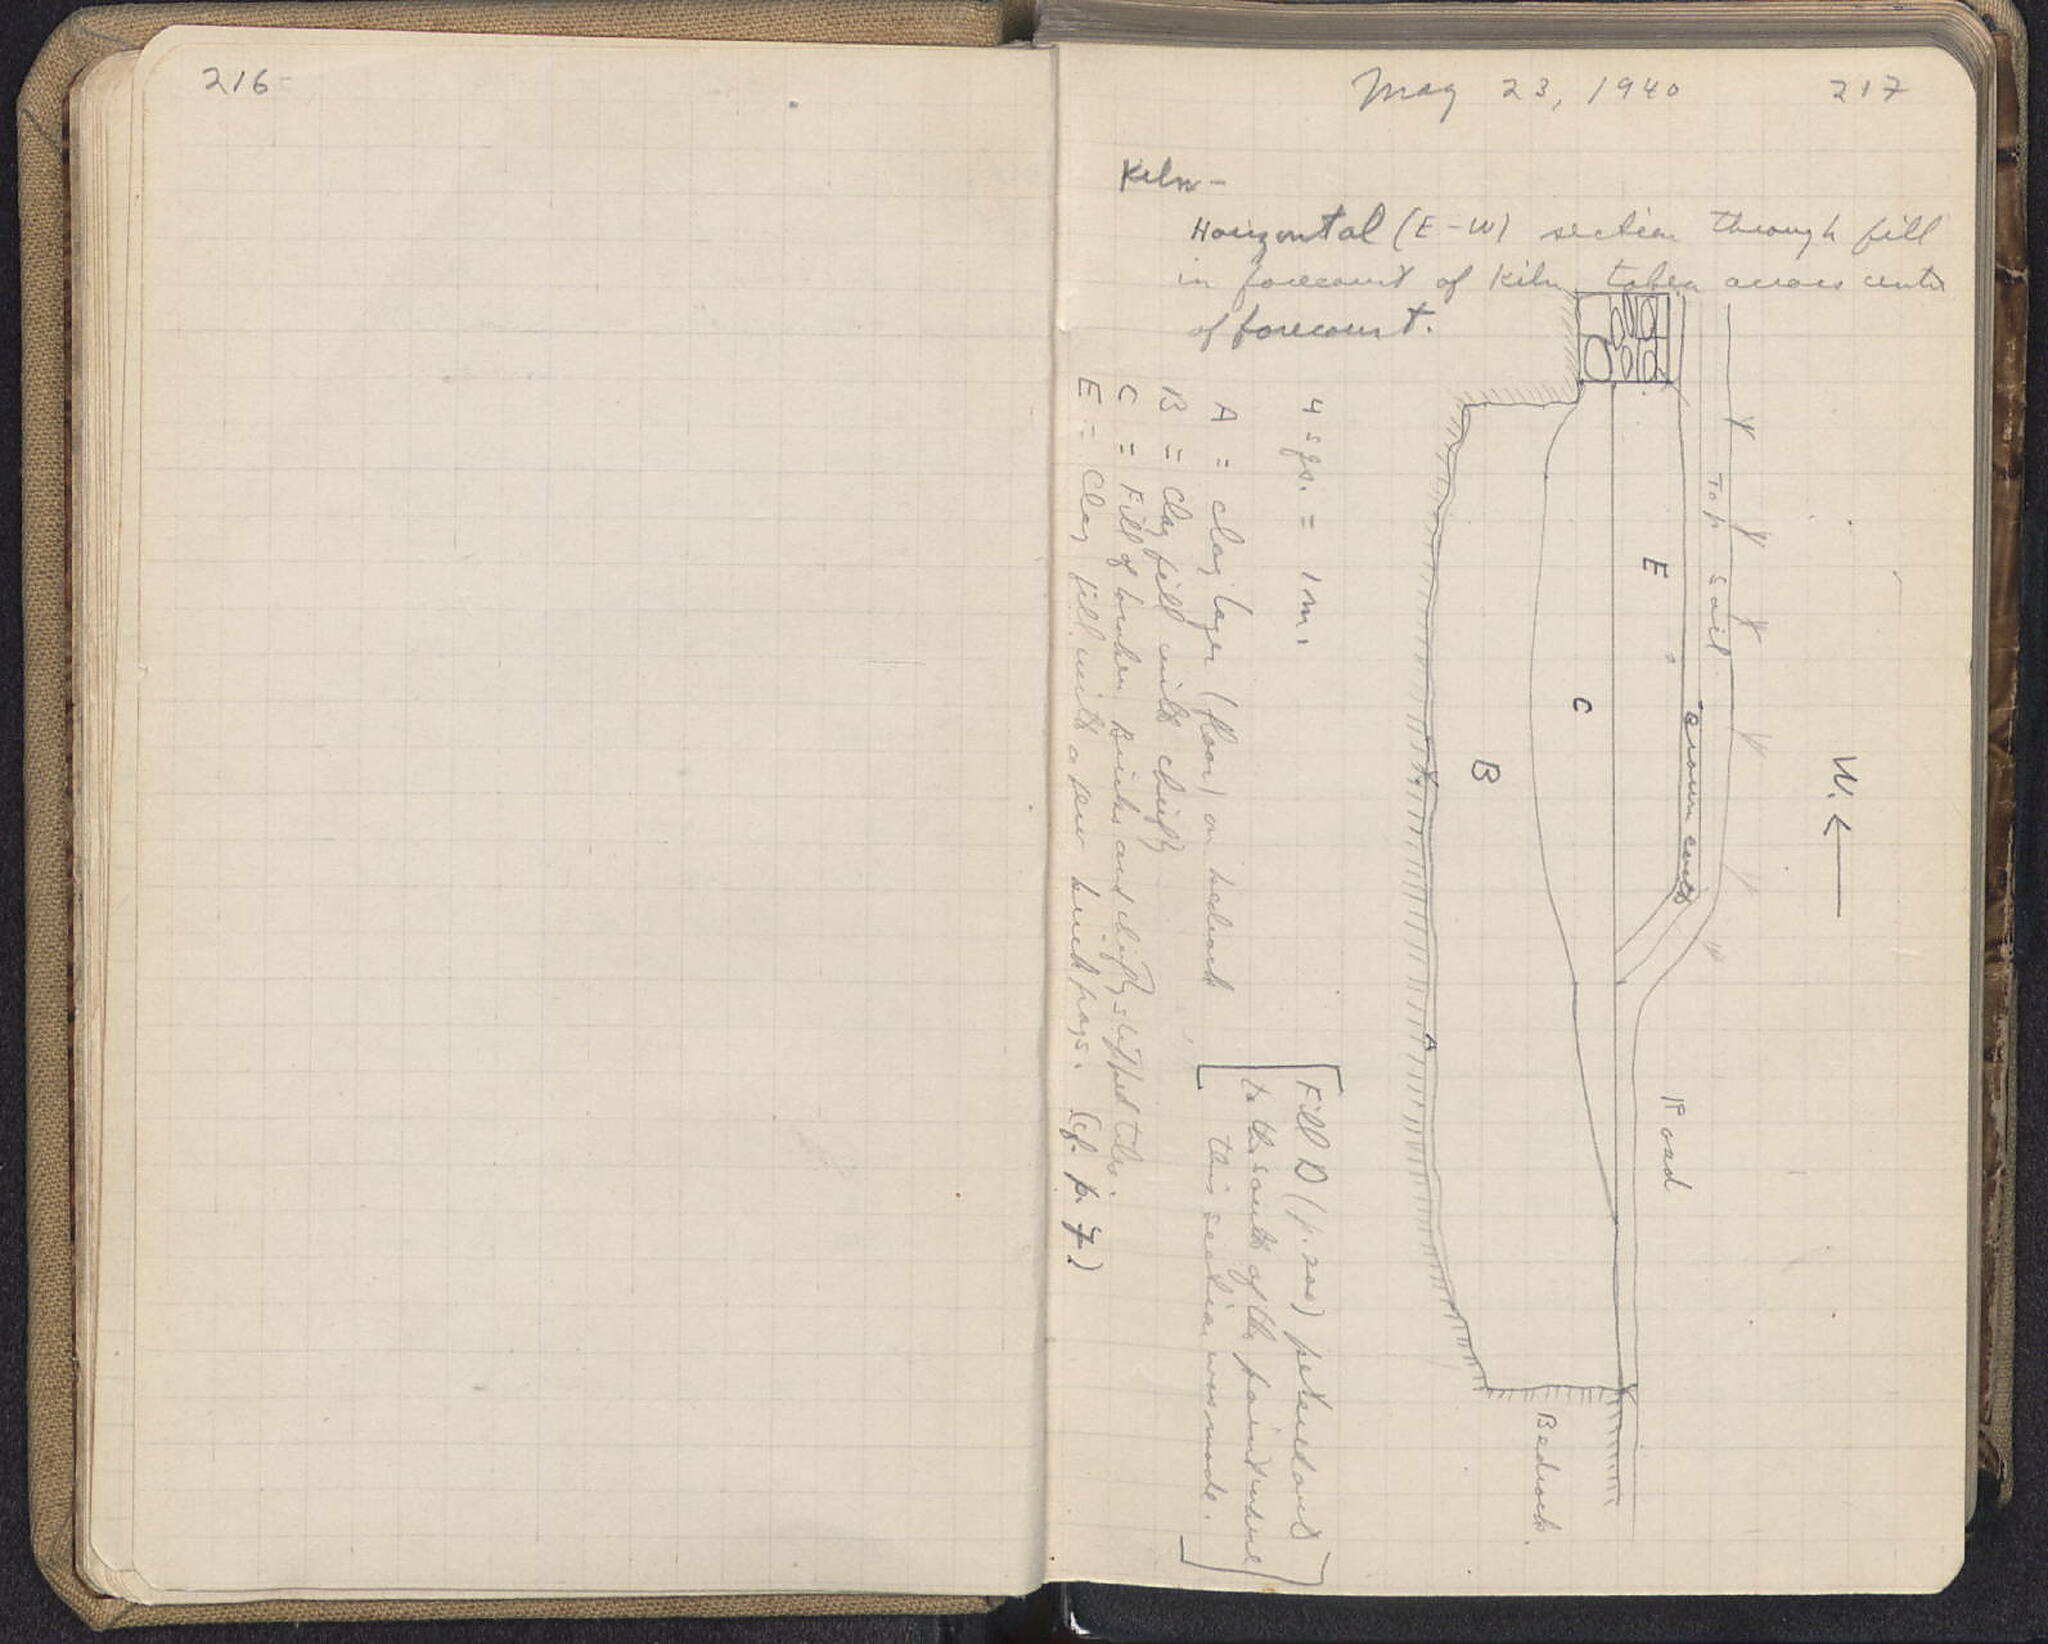 216
May 23, 1940 217
Kiln -
Horizontal (E-W) section through fill
in forecourt of Kiln taken across centre
of forecourt.
W. ←
Top soil
Road
E
C
B
A
Bedrock.
4 sqs. = 1 m.
A = clay layer (floor) on bedrock
B = Clay fill with chiefly
C = Fill of broken Bricks and chiefly slipped tiles.
E = Clay fill with a few brick frags. (cf. p. 7.)
[Fill D (p. 200) petered out
to the south of the point where
this section was made.]